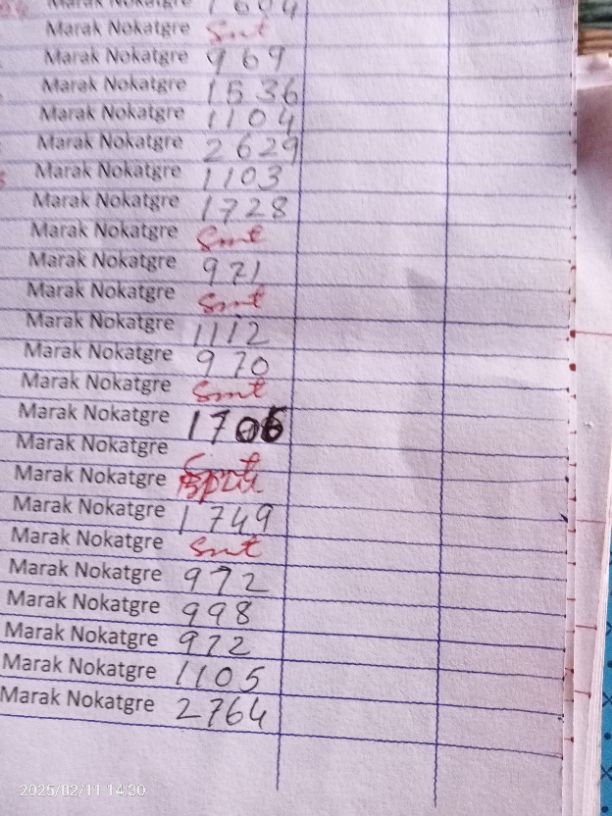 Marak Nokatgre 1604
Marak Nokatgre Smt
Marak Nokatgre 969
Marak Nokatgre 1536
Marak Nokatgre 1104
Marak Nokatgre 2629
Marak Nokatgre 1103
Marak Nokatgre 1728
Marak Nokatgre Smt
Marak Nokatgre 971
Marak Nokatgre Smt
Marak Nokatgre 1112
Marak Nokatgre 970
Marak Nokatgre Smt
Marak Nokatgre 1706
Marak Nokatgre
Marak Nokatgre
Marak Nokatgre 1749
Marak Nokatgre Smt
Marak Nokatgre 972
Marak Nokatgre 998
Marak Nokatgre 972
Marak Nokatgre 1105
Marak Nokatgre 2764
2025/02/11 14:30